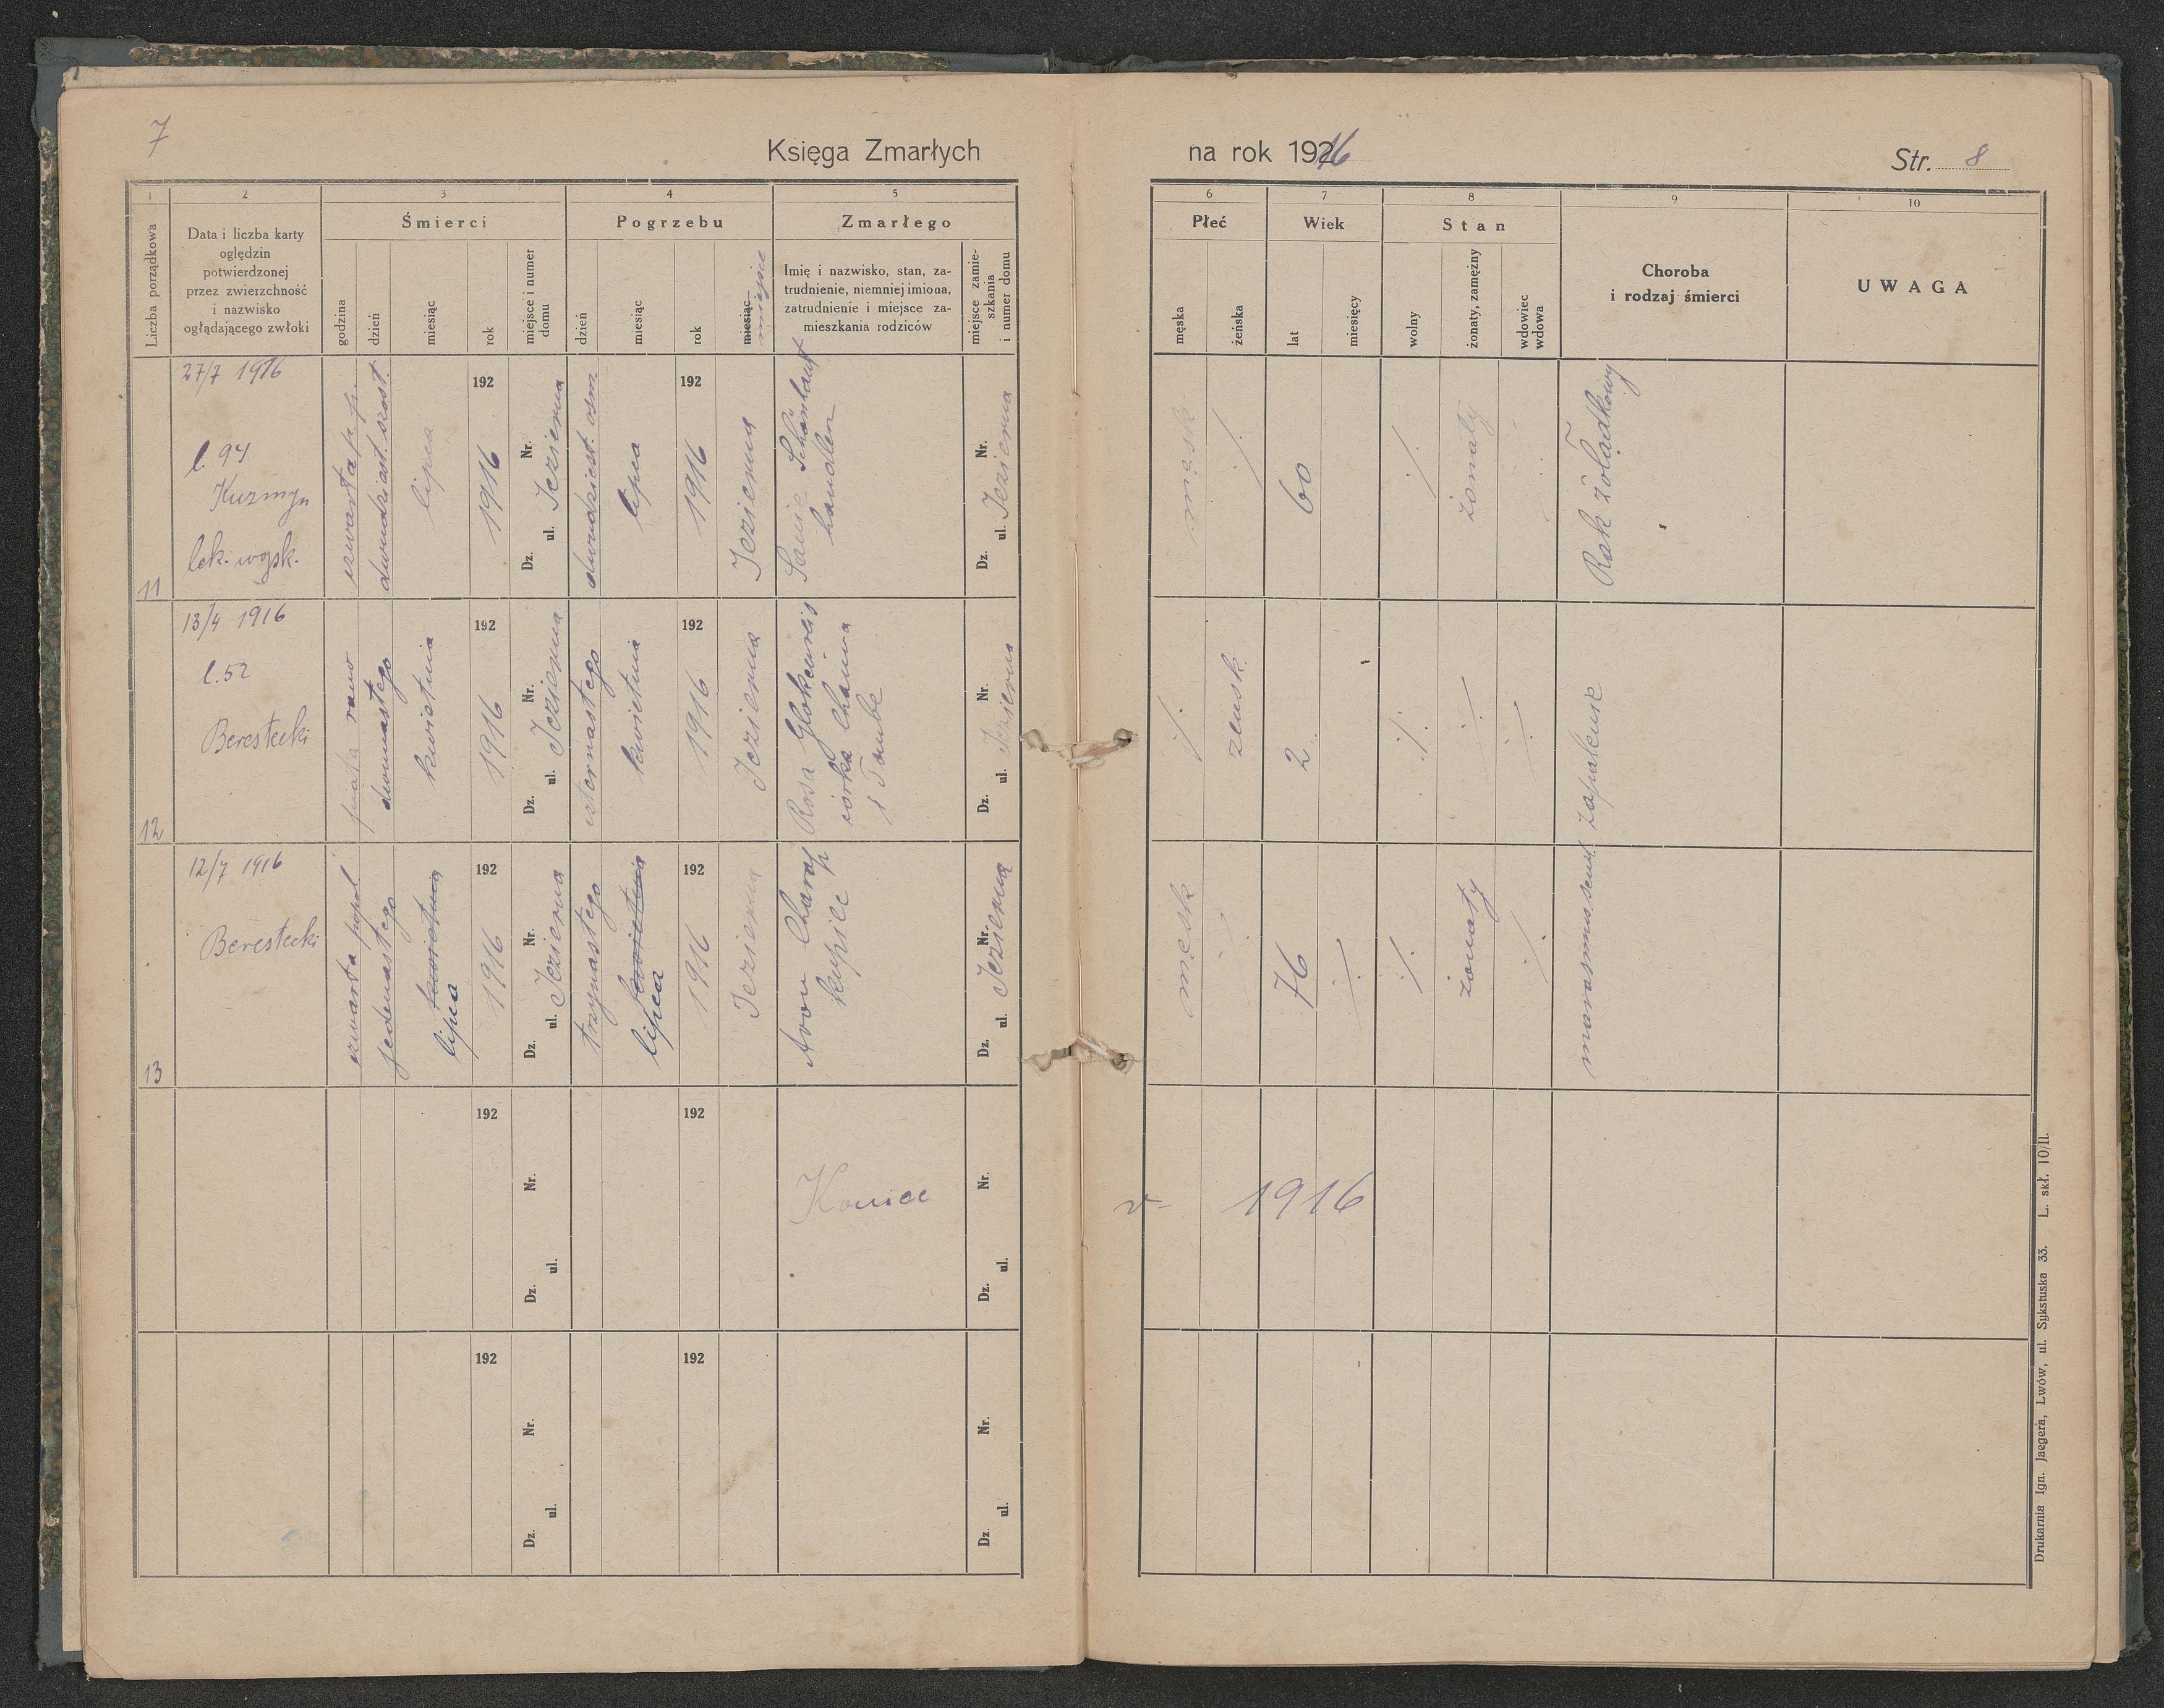 7
Księga Zmarłych
na rok 1916
Str. 8
1
2
3
4
5
6
7
8
9
10
Liczba porządkowa
Data i liczba karty
oględzin
potwierdzonej
przez zwierzchność
i nazwisko
oglądającego zwłoki
Śmierci
godzina
dzień
miesiąc
rok
miejsce i numer
domu
Pogrzebu
dzień
miesiąc
rok
miesiąc
miejsce
Zmarłego
Imię i nazwisko, stan, za-
trudnienie, niemniej imiona,
zatrudnienie i miejsce za-
mieszkania rodziców
miejsce zamie-
szkania
i numer domu
Płeć
męska
żeńska
Wiek
lat
miesięcy
Stan
wolny
żonaty, zamężny
wdowiec
wdowa
Choroba
i rodzaj śmierci
UWAGA
11
27/7 1916
l. 94
Kuzmyn
lek. wojsk.
czwarta p. p.
dwudziast. szóst.
lipca
192
1916
Dz. ul. Nr.
Jezierna
dwudziest. osm.
lipca
192
1916
Jezierna
Schönhaut
handler
Dz. ul. Nr.
Jezierna
męsk
./.
60
./.
żonaty
Rak żołądkowy
12
13/4 1916
l. 52
Berestecki
piąta rano
dwunastego
kwietnia
192
1916
Dz. ul. Nr.
Jezierna
czternastego
kwietnia
192
1916
Jezierna
Rosa
córka Chaima
i Taube
Dz. ul. Nr.
Jezierna
./.
żeńsk.
2
./.
./.
./.
zapalenie
13
12/7 1916
Berestecki
czwarta popol.
jedenastego
kwietnia
lipca
192
1916
Dz. ul. Nr.
Jezierna
trzynastego
kwietnia
lipca
192
1916
Jezierna
Aron Charap
kupiec
Dz. ul. Nr.
Jezierna
męsk
76
./.
./.
żonaty
./.
marasmus senil.
192
Dz. ul. Nr.
192
Koniec
Dz. ul. Nr.
r. 1916
192
Dz. ul. Nr.
192
Dz. ul. Nr.
Drukarnia Ign. Jaegera, Lwów, ul. Sykstuska 33. L. skł. 10/II.